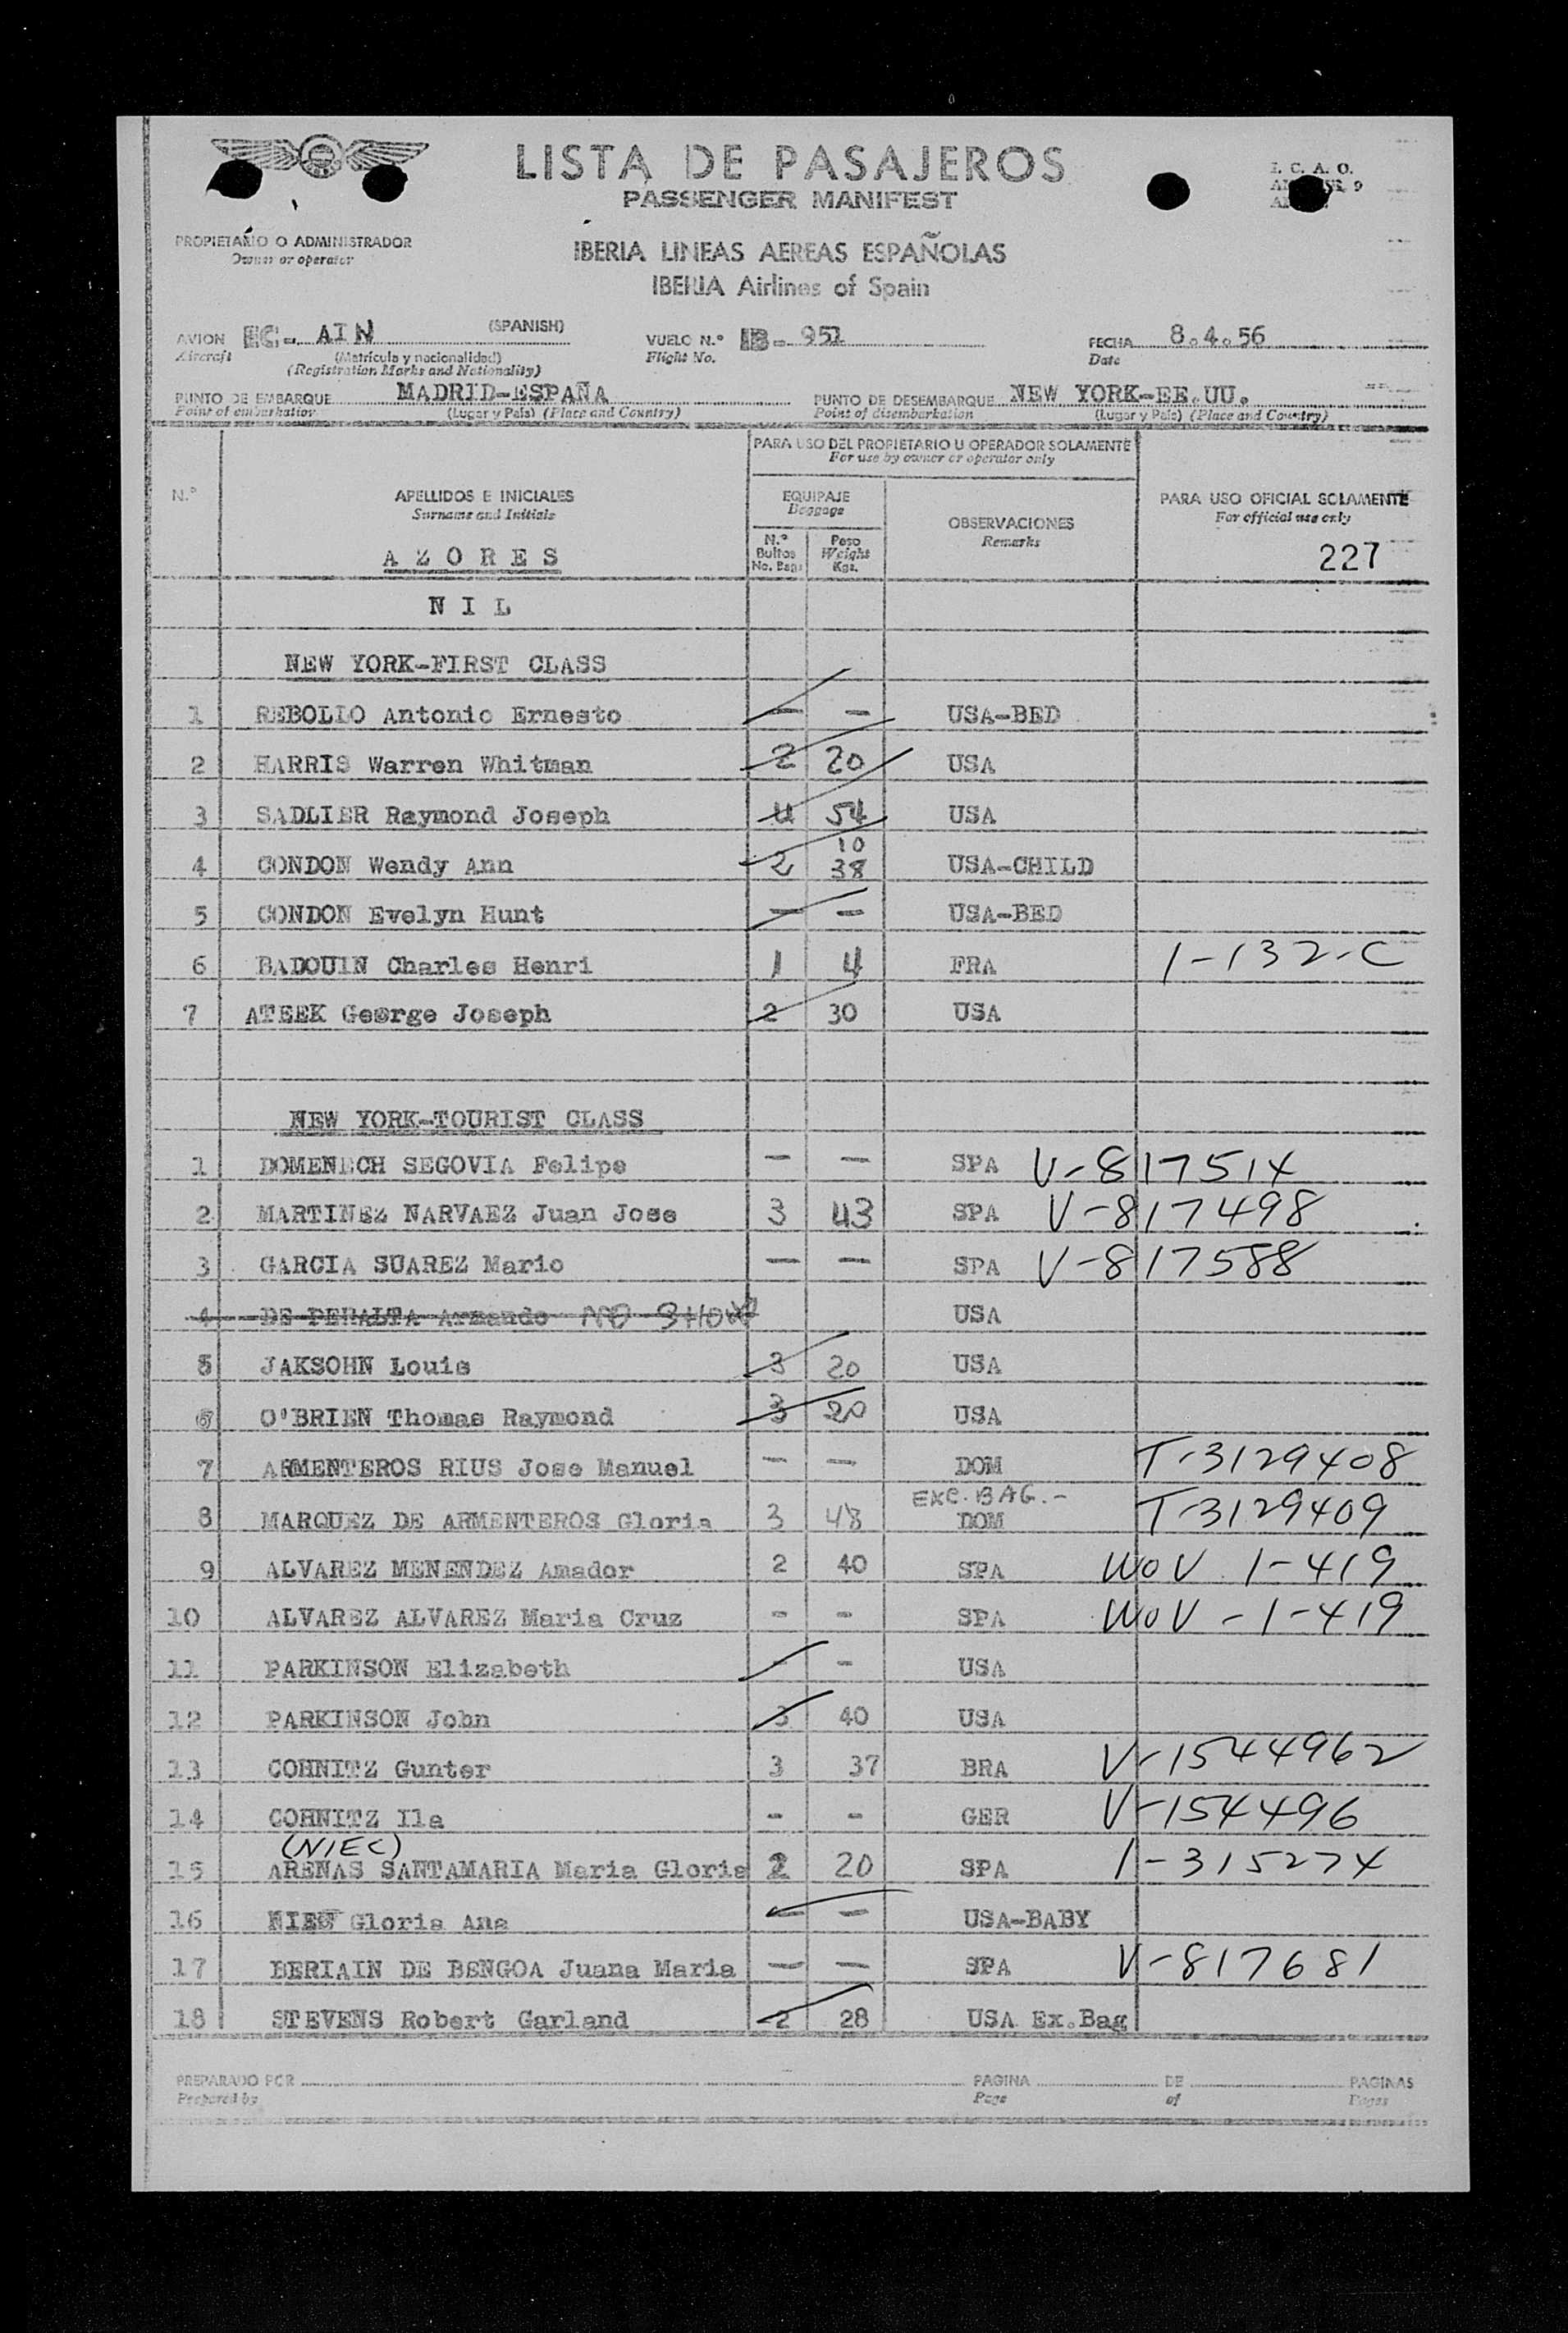 LISTA DE PASAJEROS
PASSENGER MANIFEST
I. C. A. O.
9
PROPIETARIO O ADMINISTRADOR
Owner or operator
IBERIA LINEAS AEREAS ESPAÑOLAS
IBERIA Airlines of Spain
AVION EC- AIN (SPANISH) VUELO N.° IB- 952 FECHA 8.4.56
Aircraft (Matrícula y nacionalidad) Flight No. Date
(Registration Marks and Nationality)
PUNTO DE EMBARQUE MADRID-ESPAÑA PUNTO DE DESEMBARQUE NEW YORK-EE.UU.
Point of embarkation (Lugar y País) (Place and Country) Point of disembarkation (Lugar y País) (Place and Country)
PARA USO DEL PROPIETARIO U OPERADOR SOLAMENTE
For use by owner or operator only
N.° APELLIDOS E INICIALES EQUIPAJE OBSERVACIONES PARA USO OFICIAL SOLAMENTE
Surname and Initials Baggage Remarks For official use only
A Z O R E S N.° Bultos No. Bags Peso Weight Kgs. 227
N I L
NEW YORK-FIRST CLASS
1 REBOLLO Antonio Ernesto — — USA-BED
2 HARRIS Warren Whitman 2 20 USA
3 SADLIER Raymond Joseph 4 54 USA
10
4 CONDON Wendy Ann 2 38 USA-CHILD
5 CONDON Evelyn Hunt — — USA-BED
6 BADOUIN Charles Henri 1 4 FRA 1-132-C
7 ATEEK George Joseph 2 30 USA
NEW YORK-TOURIST CLASS
1 DOMENECH SEGOVIA Felipe — — SPA V-817514
2 MARTINEZ NARVAEZ Juan Jose 3 43 SPA V-817498
3 GARCIA SUAREZ Mario — — SPA V-817588
4 DE PERALTA Armando NO SHOW USA
5 JAKSOHN Louis 3 20 USA
6 O'BRIEN Thomas Raymond 3 20 USA
7 ARMENTEROS RIUS Jose Manuel — — DOM T-3129408
EXC. BAG.-
8 MARQUEZ DE ARMENTEROS Gloria 3 48 DOM T-3129409
9 ALVAREZ MENENDEZ Amador 2 40 SPA WOV 1-419
10 ALVAREZ ALVAREZ Maria Cruz - - SPA WOV-1-419
11 PARKINSON Elizabeth - - USA
12 PARKINSON John 3 40 USA
13 COHNITZ Gunter 3 37 BRA V-1544962
14 COHNITZ Ila - - GER V-154496
(NIEC)
15 ARENAS SANTAMARIA Maria Gloria 2 20 SPA 1-315274
16 Gloria Ana — — USA-BABY
17 BERIAIN DE BENGOA Juana Maria — — SPA V-817681
18 STEVENS Robert Garland 2 28 USA Ex.Bag
PREPARADO POR PAGINA DE PAGINAS
Prepared by Page of Pages